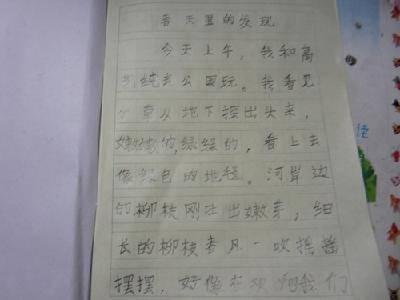 春天里的发现
今天上午，我和高
纯去公园玩。我看见
小草从地下探出头来，
嫩嫩的，绿绿的，看上去
像绿色的地毯。河岸边
的柳枝刚吐出嫩芽，细
长的柳枝春风一吹摇摇
摆摆，好像在欢迎我们